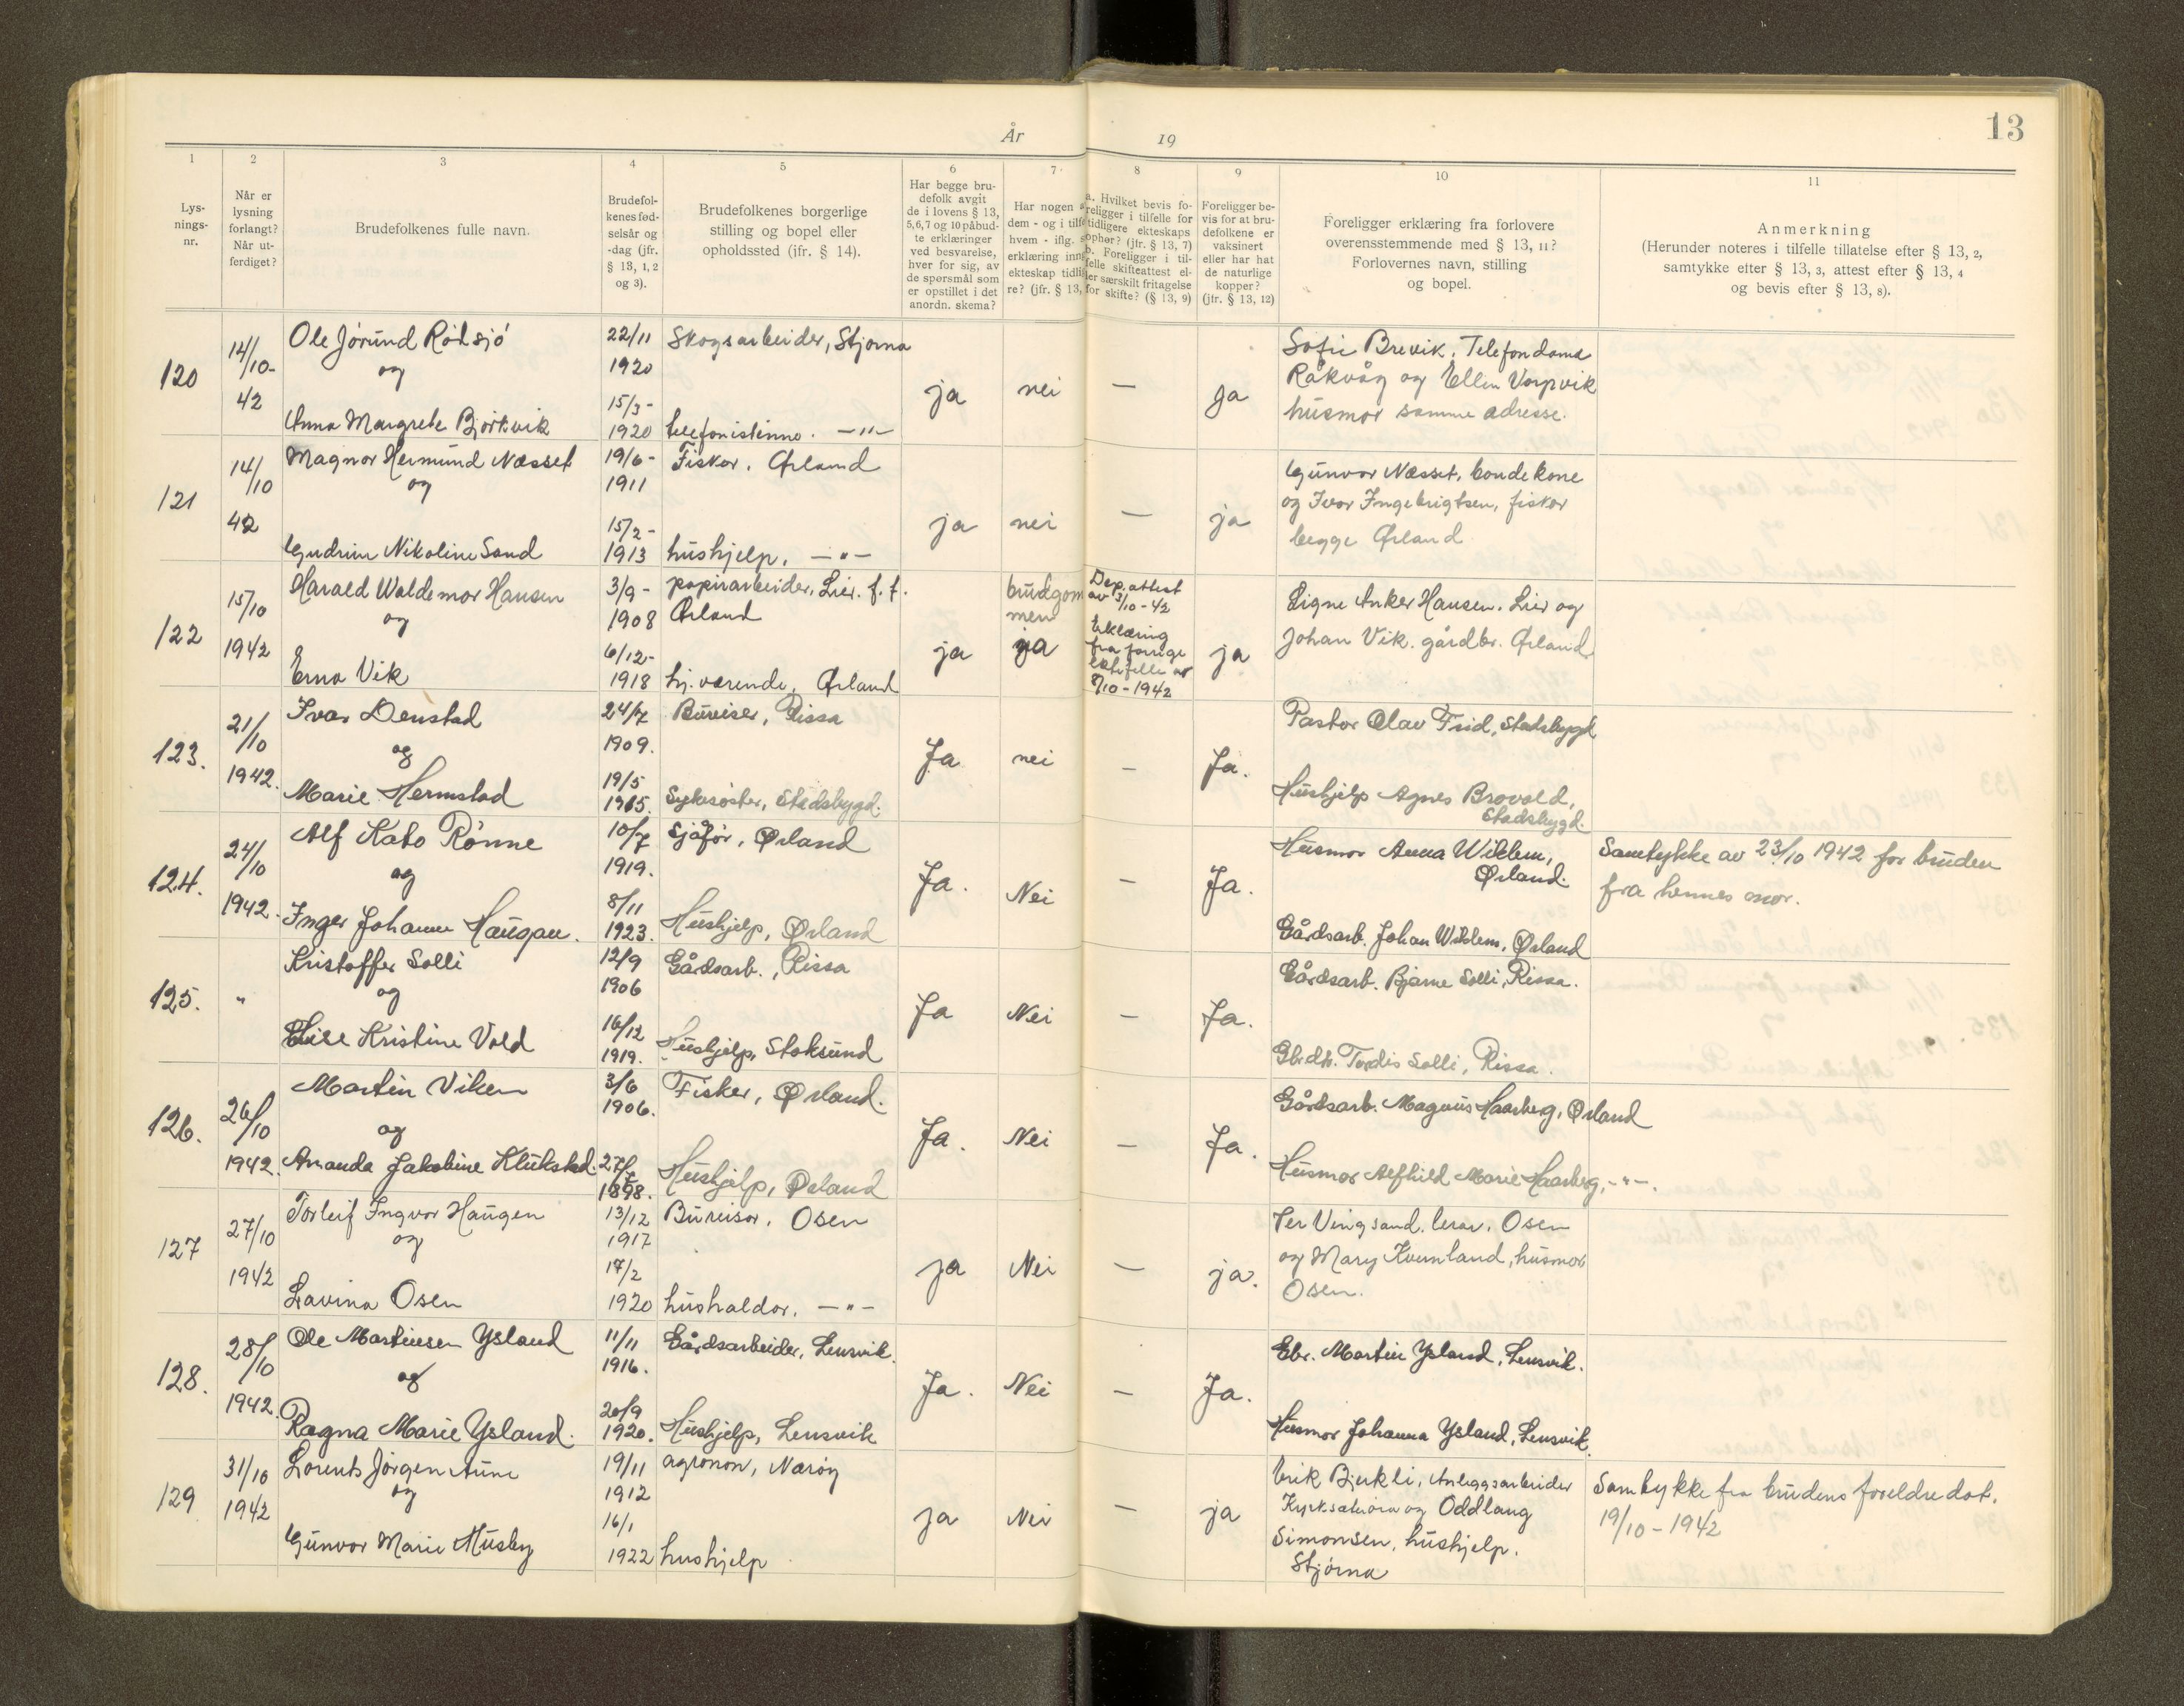 År 19
13
1 2 3 4 5 6 7 8 9 10 11
Lys-
nings-
nr.
Når er
lysning
forlangt?
Når ut-
ferdiget?
Brudefolkenes fulle navn.
Brudefol-
kenes fød-
selsår og
-dag (jfr.
§ 13, 1, 2
og 3).
Brudefolkenes borgerlige
stilling og bopel eller
opholdssted (jfr. § 14).
Har begge bru-
defolk avgit
de i lovens § 13,
5,6,7 og 10 påbud-
te erklæringer
ved besvarelse,
hver for sig, av
de spørsmål som
er opstillet i det
anordn. skema?
Har nogen
dem - og i tilf
hvem - iflg.
erklæring inng
ekteskap tidli
re? (jfr. § 13,
a. Hvilket bevis fo-
religger i tilfelle for
tidligere ekteskaps
ophør? (jfr. § 13, 7)
b. Foreligger i til-
felle skifteattest el-
ler særskilt fritagelse
for skifte? (§ 13, 9)
Foreligger be-
vis for at bru-
defolkene er
vaksinert
eller har hat
de naturlige
kopper?
(jfr. § 13, 12)
Foreligger erklæring fra forlovere
overensstemmende med § 13, 11?
Forlovernes navn, stilling
og bopel.
Anmerkning
(Herunder noteres i tilfelle tillatelse efter § 13, 2,
samtykke efter § 13, 3, attest efter § 13, 4
og bevis efter § 13, 8).
120
14/10-
42
Ole Jórund Rödsjö
og
Anna Margrete Bjørkvik
22/11
1920
15/3-
1920
Skogsarbeider, Stjørna
telefonistinne. —"—
ja
nei
—
ja
Sofie Brevik. Telefondame
Råkvåg og Ellen Vorpvik
husmor samme adresse.
121
14/10
42
Magnor Hermund Næsset
og
Gudrun Nikoline Sand
19/6-
1911
15/2-
1913
Fisker. Ørland
hushjelp. —"—
ja
nei
—
ja
Gunvor Næsset, bondekone
og Ivar Ingebrigtsen, fisker
begge Ørland
122
15/10
1942
Harald Waldemar Hansen
og
Erna Vik
3/9-
1908
6/12-
1918
papirarbeider, Lier. f. t.
Ørland
hj. værende. Ørland
ja
brudgom
men
ja
Dep. attest
av 3/10-42
Erklæring
fra forrige
ektefelle av
8/10-1942
ja
Signe Anker Hansen. Lier og
Johan Vik. gårdbr. Ørland
123.
21/10
1942.
Ivar Denstad
og
Marie Hermstad
24/7
1909.
19/5
1915.
Bureiser, Rissa
Sykesøster, Stadsbygd.
Ja
nei
—
Ja.
Pastor Olav Frid, Stadsbygd
Hushjelp Agnes Brovold,
Stadsbygd.
124.
24/10
1942.
Alf Kato Rönne
og
Inger Johanne Haugan.
10/7
1919.
8/11
1923.
Sjåfør, Ørland
Hushjelp, Ørland
Ja.
Nei
—
Ja.
Husmor Anna Wiklem,
Ørland.
Gårdsarb. Johan Wiklem, Ørland
Samtykke av 23/10 1942 for bruden
fra hennes mor.
125.
"
Kristoffer Solli
og
Elise Kristine Vold
12/9
1906
16/12
1919.
Gårdsarb., Rissa
Hushjelp, Stoksund
Ja
Nei
—
Ja.
Gårdsarb. Bjarne Solli, Rissa.
Gbrdtr. Tordis Solli, Rissa.
126.
26/10
1942.
Martin Viken
og
Ananda Jakobine Klukstad.
3/6
1906.
27/7
1898.
Fisker, Ørland.
Hushjelp, Ørland
Ja.
Nei
—
Ja.
Gårdsarb. Magnus Haarberg, Ørland
Husmor Alfhild Marie Haarberg, -"-.
127
27/10
1942
Torleif Ingvar Haugen
og
Lavina Osen
13/12
1917
17/2
1920
Bureiser. Osen
husholder. —"—
ja
Nei
—
ja.
Per Vingsand. lærer. Osen
og Mary Kvernland, husmor
Osen.
128.
28/10
1942.
Ole Martinsen Ysland
og
Ragna Marie Ysland.
11/11
1916.
20/9
1920.
Gårdsarbeider, Lensvik.
Hushjelp, Lensvik
Ja.
Nei
—
Ja.
Gbr. Martin Ysland, Lensvik.
Husmor Johanna Ysland, Lensvik.
129
31/10
1942
Lorents Jørgen Aune
og
Gunvor Marie Husby
19/11
1912
16/1
1922
agronom, Nærøy
hushjelp
ja
Nei
—
ja
Erik Bjerkli, Anleggsarbeider
Kyrksæterøra og Oddlaug
Simonsen, hushjelp.
Stjørna
Samtykke fra brudens foreldre dat.
19/10-1942